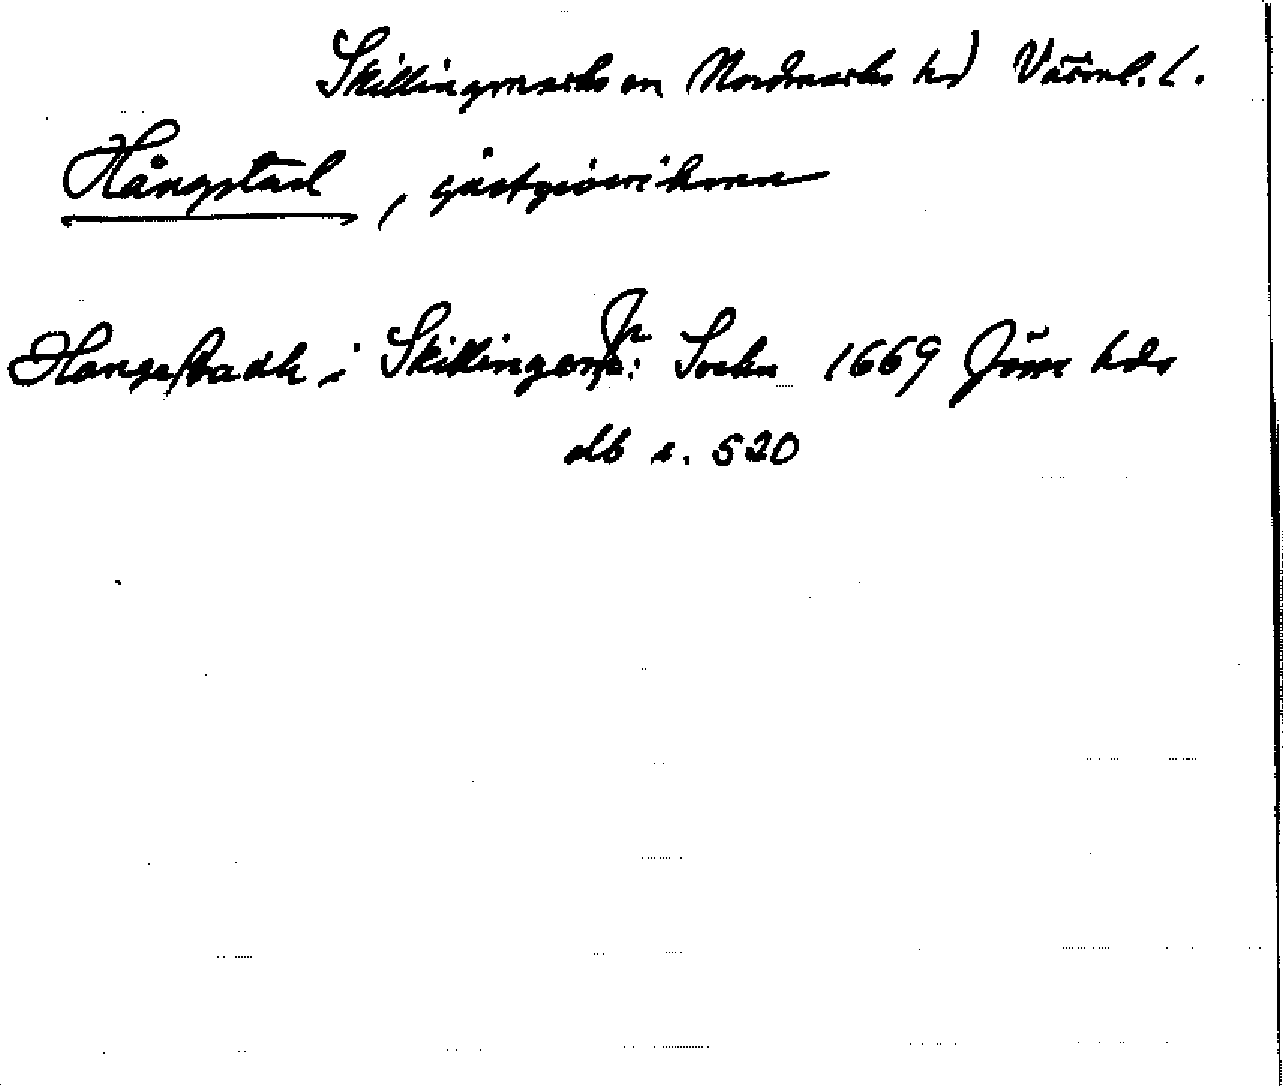 Skillingmarks sn Nordmarks hd Värml. l.
Hångstad, gästgiveri
Hangestadh i Skillingm: Sochn 1669 Jösse hds
db s. 520